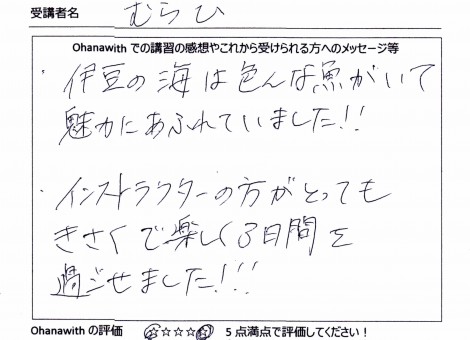 受講者名 むらひ
Ohanawith での講習の感想やこれから受けられる方へのメッセージ等
・伊豆の海は色んな魚がいて
魅力にあふれていました!!
・インストラクターの方がとっても
きさくで楽しく3日間を
過ごせました!!!
Ohanawith の評価 ☆☆☆☆☆ 5 点満点で評価してください!